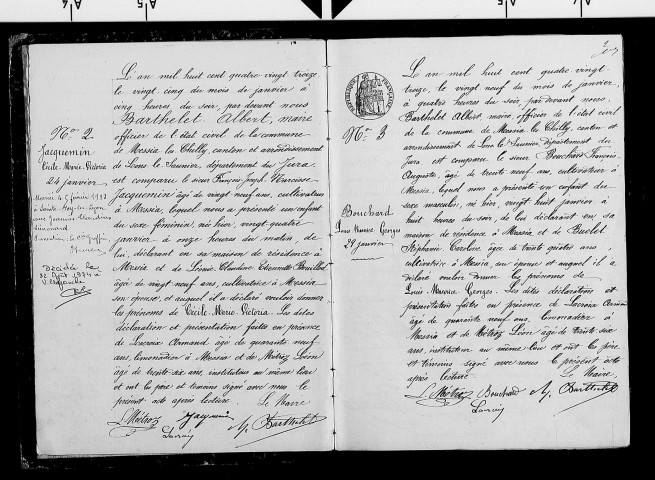 L'an mil huit cent quatre vingt treize
le vingt cinq du mois de janvier à
cinq heures du soir, par devant nous
Barthelet Albert, maire
officier de l'état civil de la commune
de Messia les Chilly, canton et arrondissement
de Lons le Saunier, département du Jura
est comparu le sieur François Joseph Narcisse
Jacquemin âgé de vingt neuf ans, cultivateur
à Messia, lequel nous a présenté un enfant
du sexe féminin, née hier, vingt quatre
janvier à onze heures du matin, de
lui, déclarant en sa maison de résidence à
Messia et de Léonie Claudine Etiennette
âgée de vingt neuf ans, cultivatrice à Messia
son épouse, et auquel il a déclaré vouloir donner
les prénoms de Cécile Marie Victoria. Les dites
déclaration et présentation faites en présence
de Lacroix Armand âgé de quarante neuf
ans, limonadier à Messia et de Métroz Léon
âgé de trente six ans, instituteur au même lieu
et ont les père et témoins signé avec nous le
présent acte après lecture. Le Maire
L. Métroz Jacquemin
Lacroix Barthelet
No 2
Jacquemin
Cécile Marie Victoria
24 janvier
Décédée le
22 Août 1974 à
No 3
Bouchard
Louis Maurice Georges
28 janvier
L'an mil huit cent quatre vingt
treize, le vingt neuf du mois de janvier,
à quatre heures du soir, par devant nous,
Barthelet Albert, maire, officier de l'état civil
de la commune de Messia les Chilly, canton et
arrondissement de Lons le Saunier, département du
Jura, est comparu le sieur Bouchard François
Auguste, âgé de trente neuf ans, cultivateur à
Messia, lequel nous a présenté un enfant du
sexe masculin, né hier, vingt huit janvier à
huit heures du soir, de lui déclarant en sa
maison de résidence à Messia et de
Stéphanie Caroline âgée de trente quatre ans,
cultivatrice à Messia son épouse et auquel il a
déclaré vouloir donner les prénoms de
Louis Maurice Georges. Les dites déclarations et
présentation faites en présence de Lacroix Armand
âgé de quarante neuf ans, limonadier à
Messia et de Métroz Léon âgé de trente six
ans, instituteur au même lieu et ont les père
et témoins signé avec nous le présent acte
après lecture. Le Maire
L. Métroz Bouchard Barthelet
Lacroix